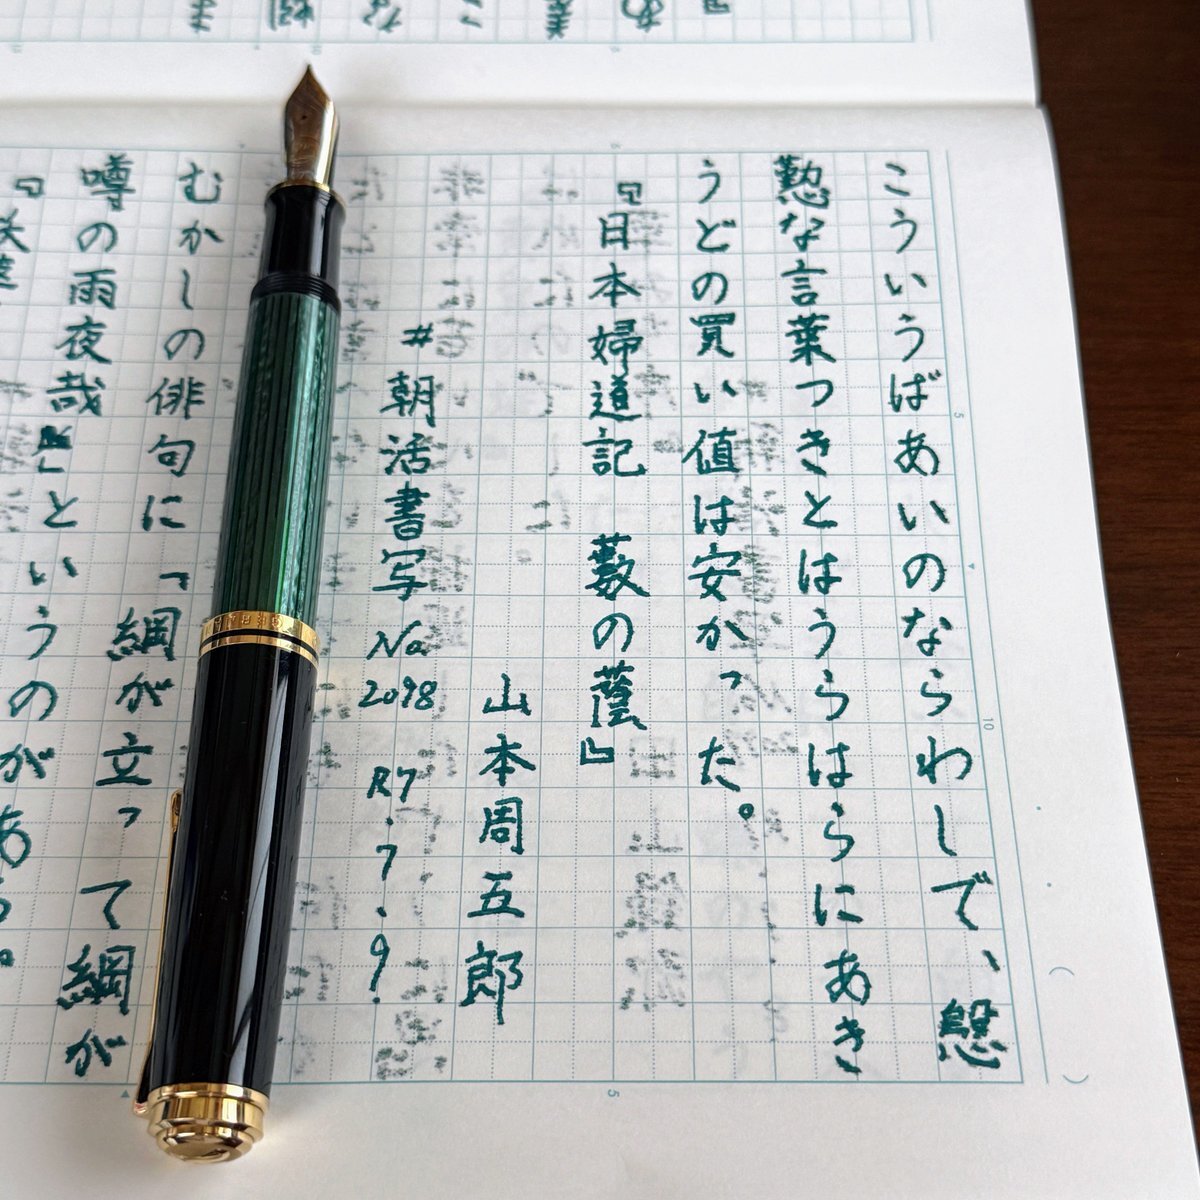 こういうばあいのならわしで、慇
懃な言葉つきとはうらはらにあき
うどの買い値は安かった。
『日本婦道記 藪の蔭』
山本周五郎
#朝活書写 No 2098 R7.7.9.
むかしの俳句に「綱が立って綱が
噂の雨夜哉」というのがある。